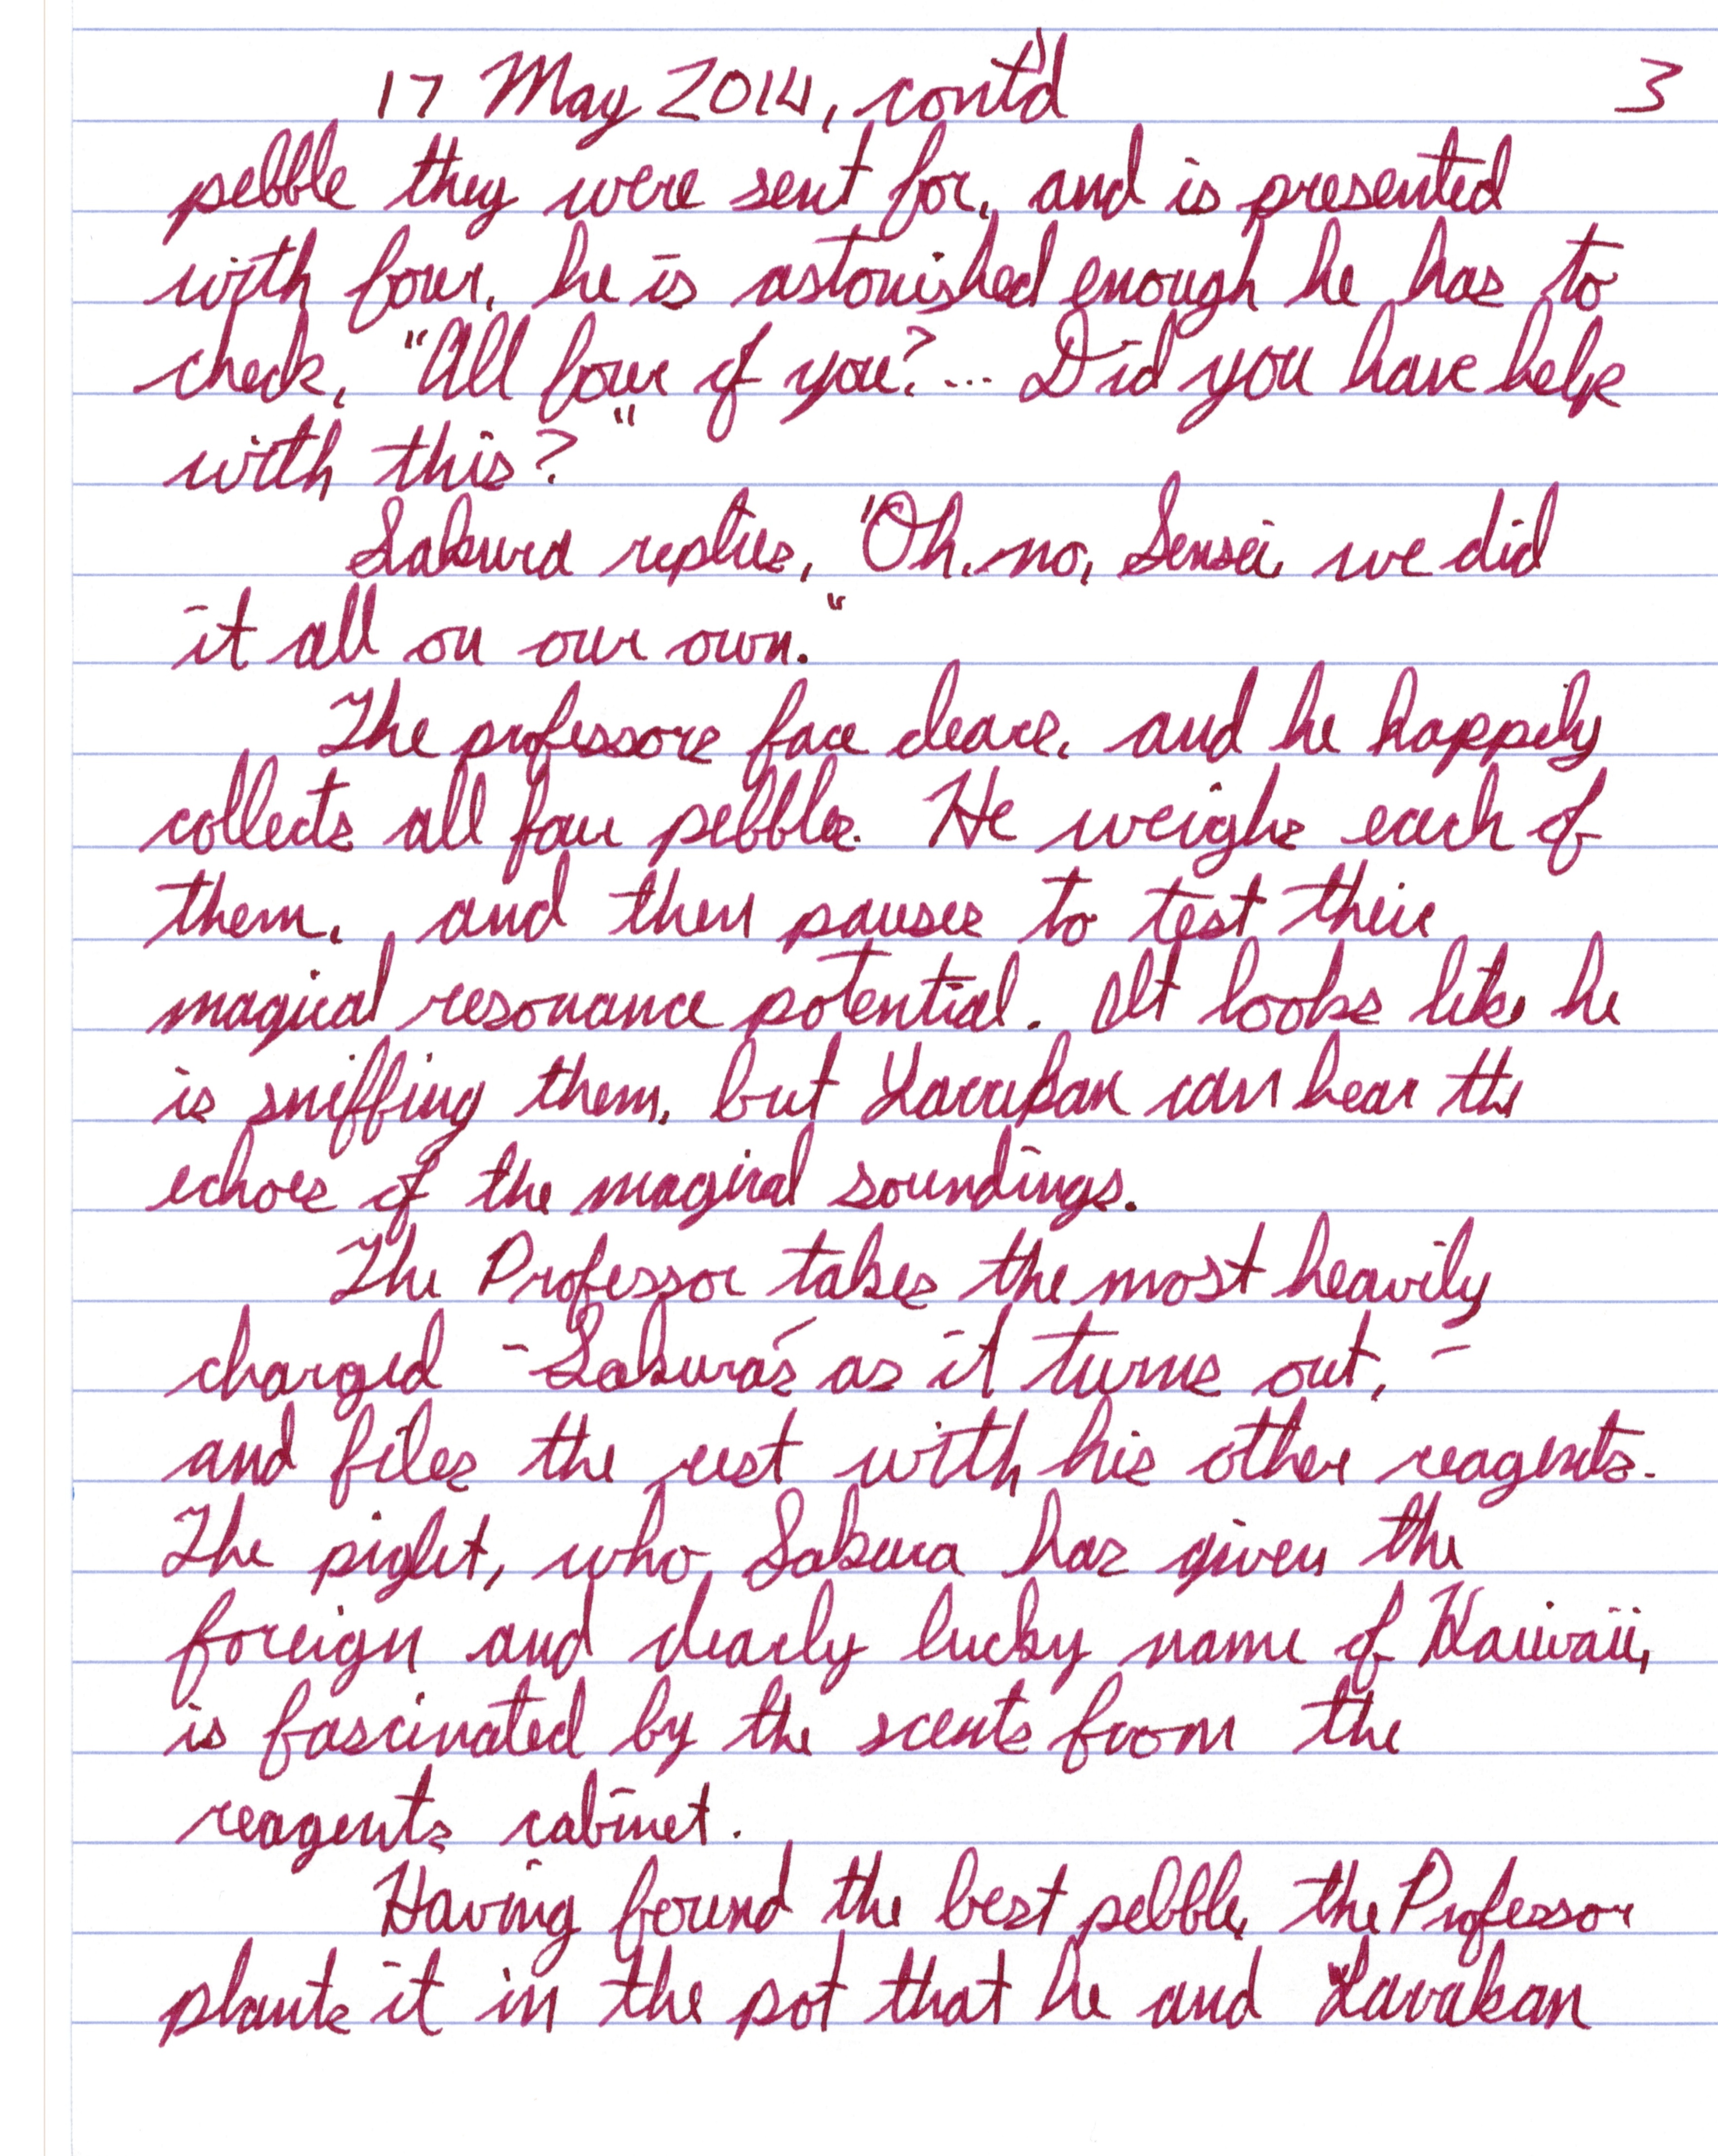 17 May 2014, cont'd 3
pebble they were sent for, and is presented
with four, he is astonished enough he has to
check, "All four of you?... Did you have help
with this?"
Sakura replies, "Oh, no, Sensei, we did
it all on our own."
The professors face clears, and he happily
collects all four pebbles. He weighs each of
them, and then pauses to test their
magical resonance potential. It looks like he
is sniffing them, but can hear the
echoes of the magical soundings.
The Professor takes the most heavily
charged - Sakura's as it turns out, -
and files the rest with his other reagents.
The piglet, who Sakura has given the
foreign and clearly lucky name of
is fascinated by the scents from the
reagents cabinet.
Having found the best pebble, the Professor
plants it in the pot that he and